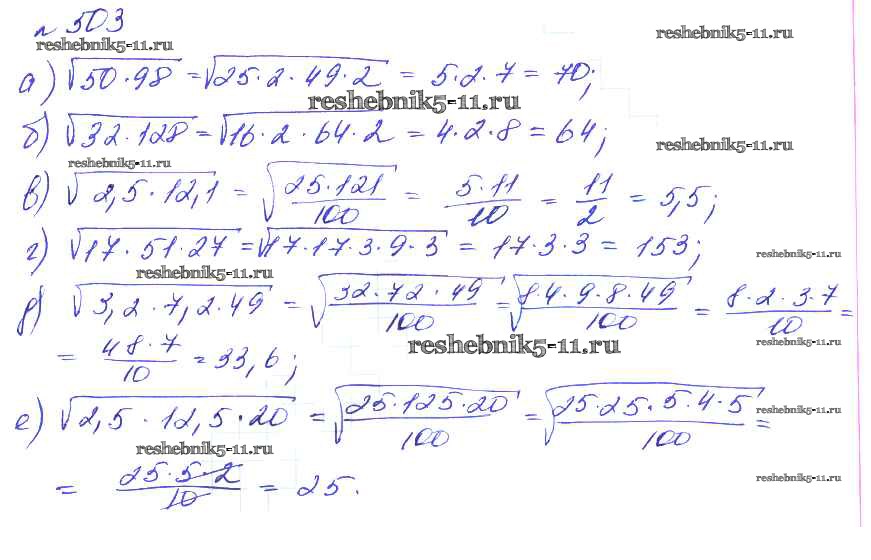 № 503
reshebnik5-11.ru
reshebnik5-11.ru
а) √50·98 = √25·2·49·2 = 5·2·7 = 70;
reshebnik5-11.ru
б) √32·128 = √16·2·64·2 = 4·2·8 = 64;
reshebnik5-11.ru
reshebnik5-11.ru
в) √2,5·12,1 = √25·121/100 = 5·11/10 = 11/2 = 5,5;
г) √17·51·27 = √17·17·3·9·3 = 17·3·3 = 153;
reshebnik5-11.ru
reshebnik5-11.ru
д) √3,2·7,2·49 = √32·72·49/100 = √8·4·9·8·49/100 = 8·2·3·7/10 =
reshebnik5-11.ru
reshebnik5-11.ru
= 48·7/10 = 33,6;
е) √2,5·12,5·20 = √25·125·20/100 = √25·25·5·4·5/100 =
reshebnik5-11.ru
reshebnik5-11.ru
= 25·5·2/10 = 25.
reshebnik5-11.ru